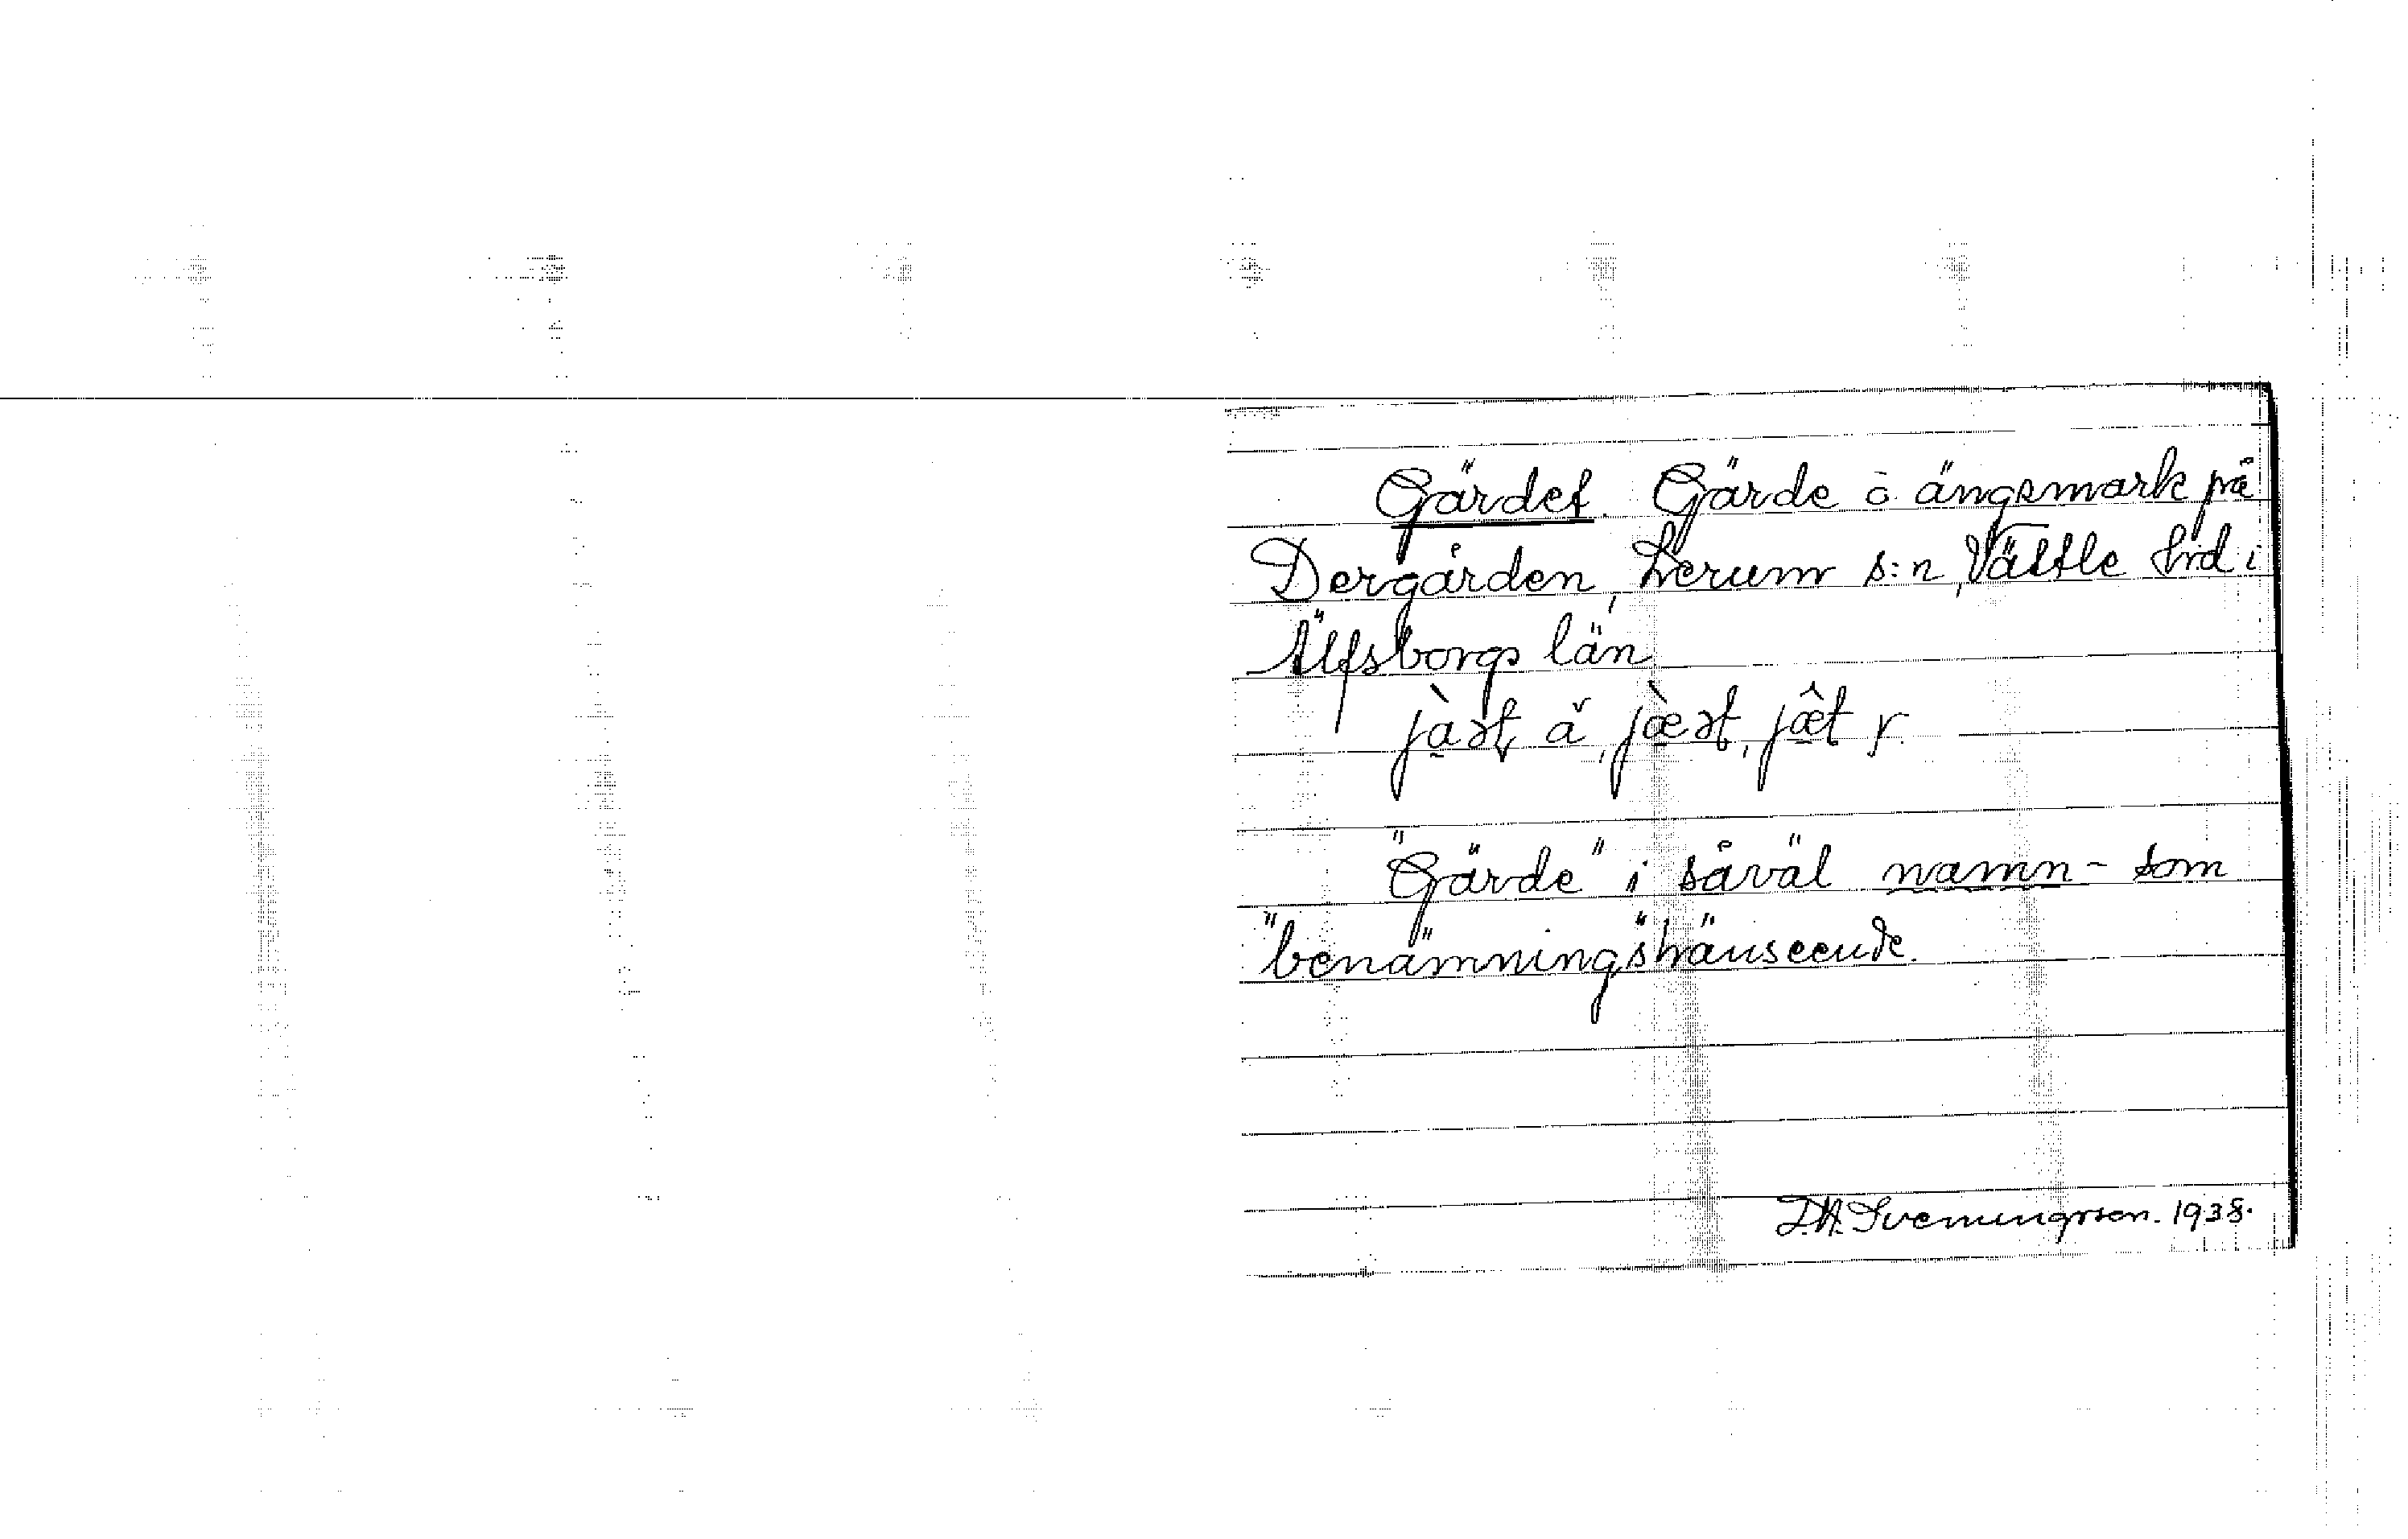 Gärdet. Gärde o ängsmark på
Dergården, Lerum s:n, Vättle hrd i
Älfsborgs län
jàət, ä, jæ̀ət, jæ̂t y.
"Gärde" i såväl namn- som
"benämnings"hänseende.
Svenningsson. 1938.